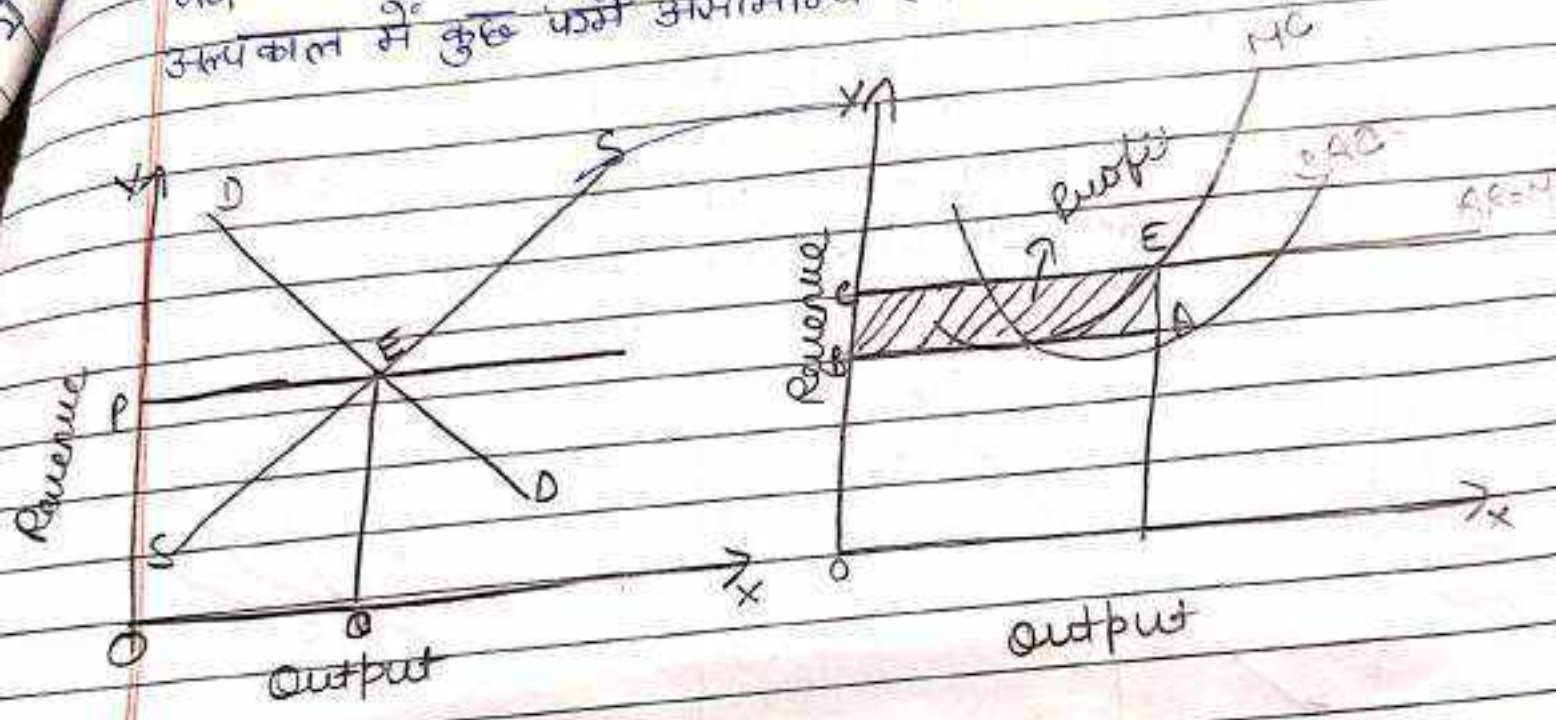 अल्पकाल में कुछ फर्में असामान्य
Y
D
S
E
P
Revenue
S
D
O
Q
X
Output
Y
MC
Profit
SAC
E
C
Revenue
B
A
O
X
Output